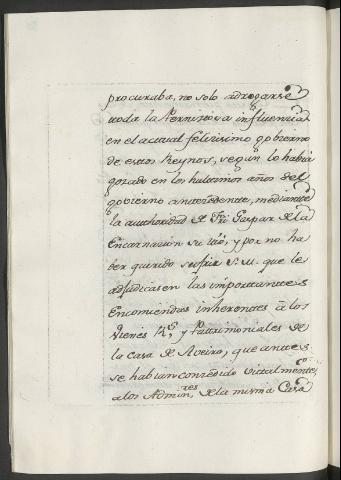 procuraba, no solo adrogarse
toda la Perniziosa influencia
en el actual felizisimo gobierno
de estos Reynos, segun lo habia
gozado en los hultimos años del
gobierno antecedente, mediante
la authoridad de Fri Gaspar de la
Encarnacion su tio, y por no ha
ber querido sufrir S. M. que le
adjudicasen las importantes
Encomiendas inherentes à los
Vienes Rs. y Patrimoniales de
la Casa de Aveiro, que antes
se habian conzedido vitalmente,
a los Adminres. de la misma Casa